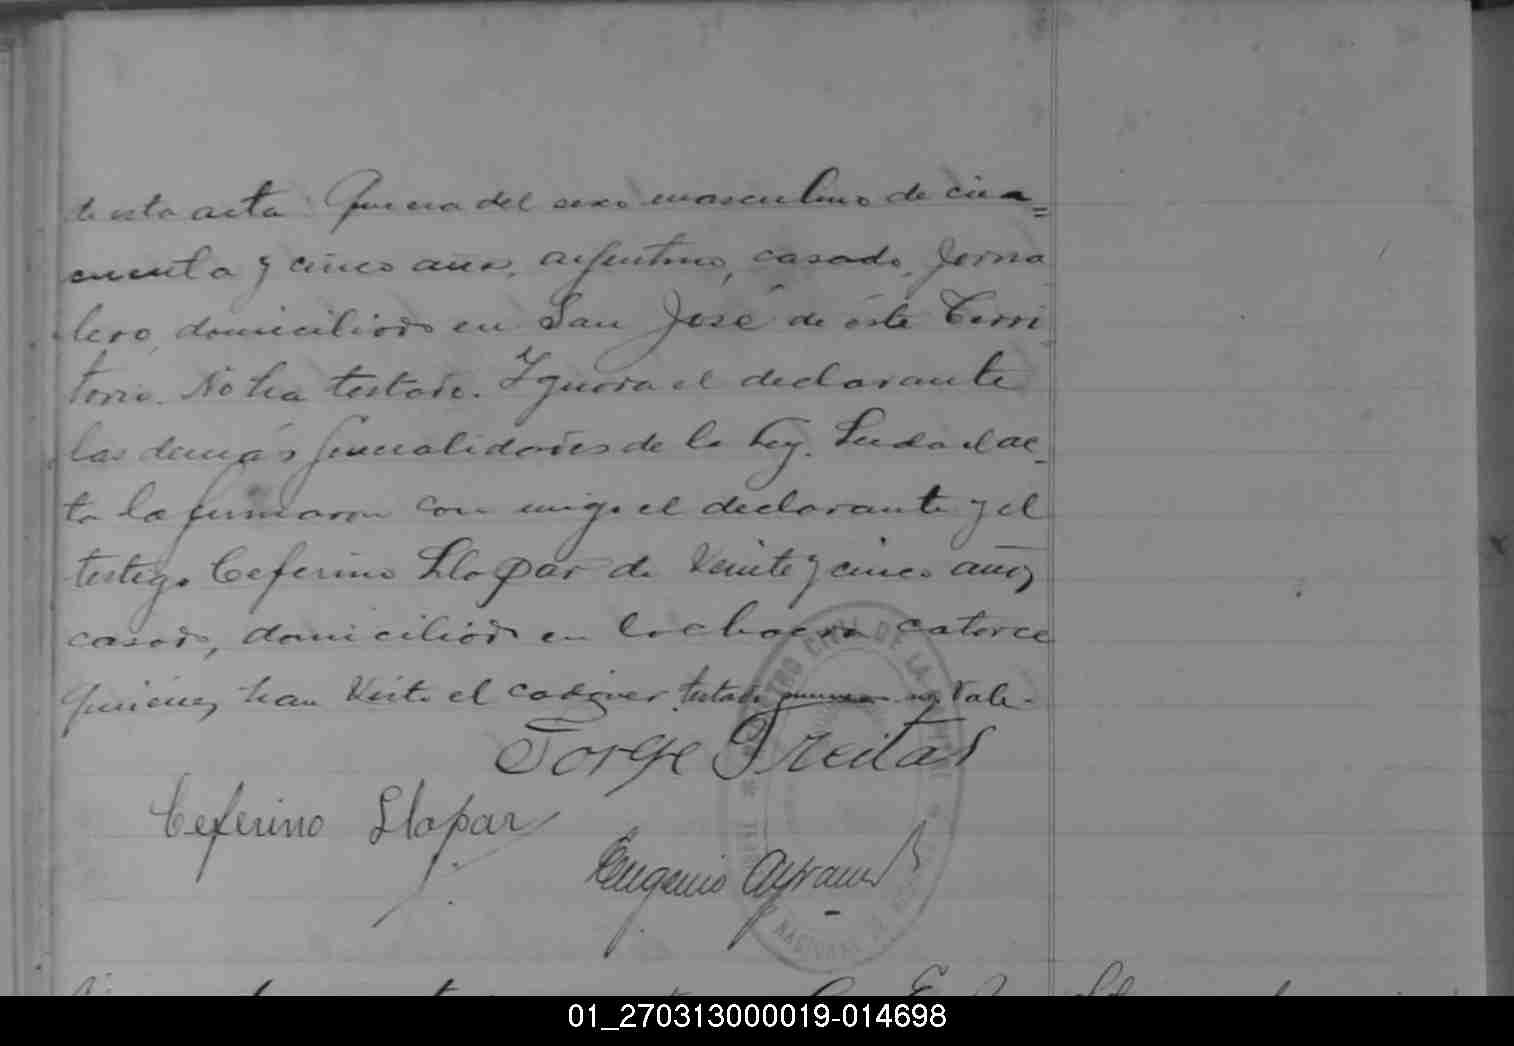 de esta acta. Que era del sexo masculino de cin=
cuenta y cinco años, argentino, casado, jorna
lero, domiciliado en San José de éste Terri
torio. No ha testado. Ignora el declarante
las demás generalidades de la ley. Leida el ac_
ta la firmaron con migo el declarante y el
testigo Ceferino Llopar de veinte y cinco años
casado, domiciliado en la chacra catorce
quienes han visto el cadaver testado no vale.
Jorge Freitas
Ceferino Llopar
Eugenio
REGISTRO CIVIL DE LA
NACIONAL DE
01_270313000019-014698